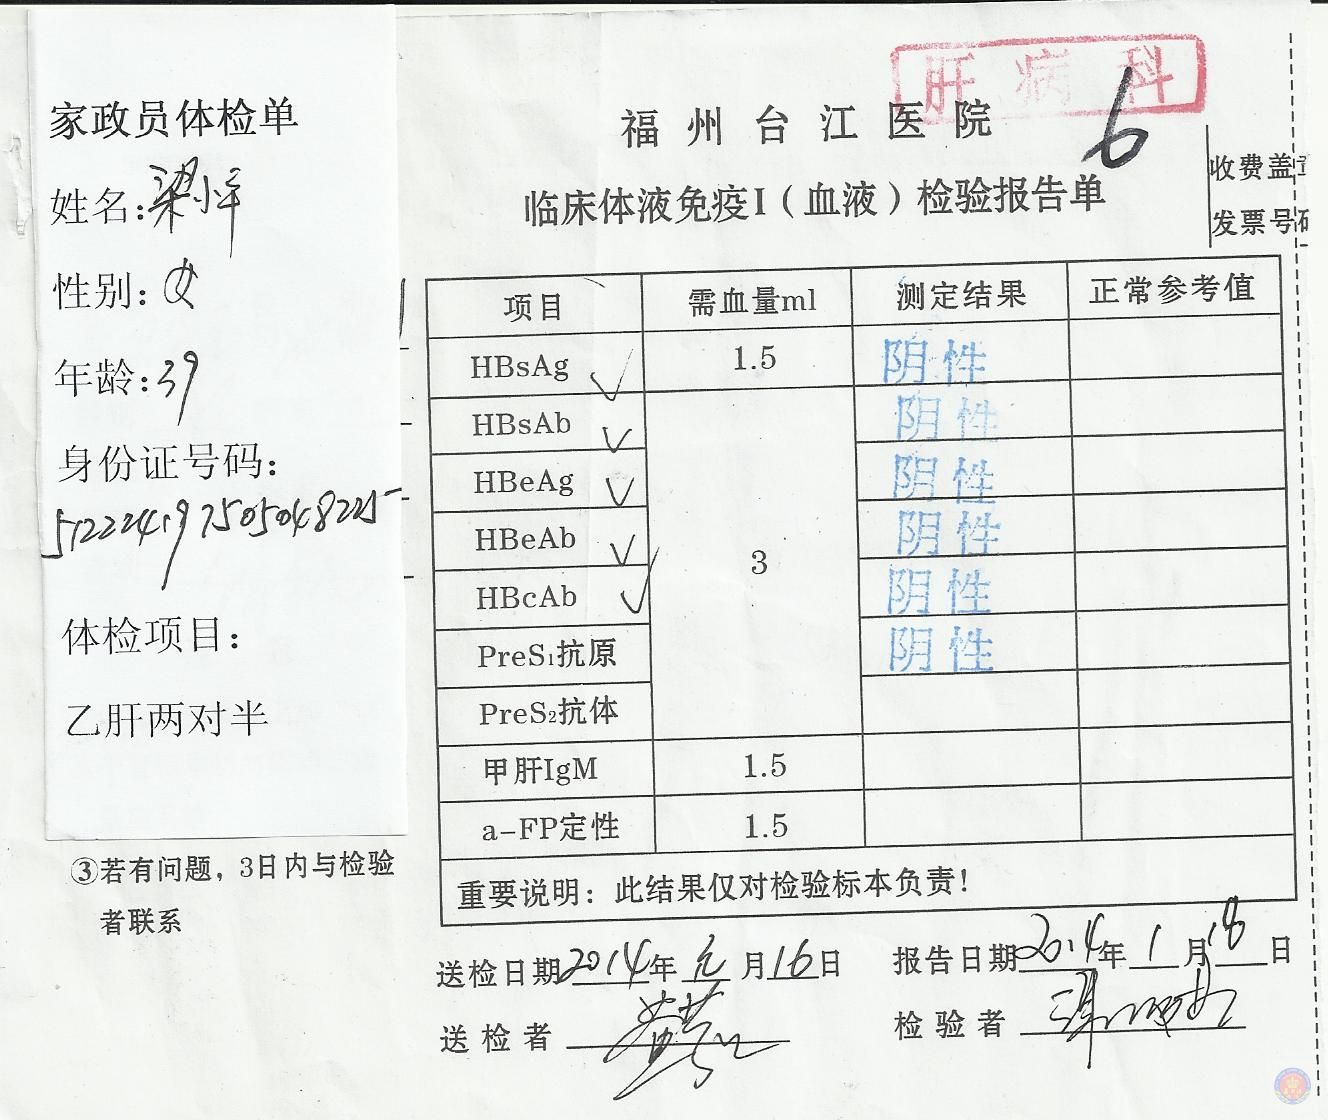 家政员体检单
姓名:梁小平
性别:女
年龄:39
身份证号码:
512224197505048225
体检项目:
乙肝两对半
③若有问题,3日内与检验
者联系
肝病科
6
福州台江医院
临床体液免疫I(血液)检验报告单
收费盖
发票号码
项目 需血量ml 测定结果 正常参考值
HBsAg ✓ 1.5 阴性
HBsAb ✓ 阴性
HBeAg ✓ 阴性
HBeAb ✓ 3 阴性
HBcAb ✓ 阴性
PreS₁抗原 阴性
PreS₂抗体
甲肝IgM 1.5
a-FP定性 1.5
重要说明:此结果仅对检验标本负责!
送检日期2014年元月16日 报告日期2014年1月18日
送检者 检验者